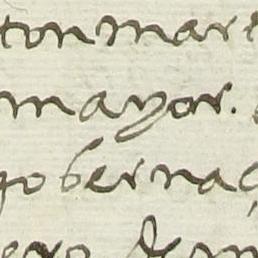 ton mar
mayor.
gobernaç